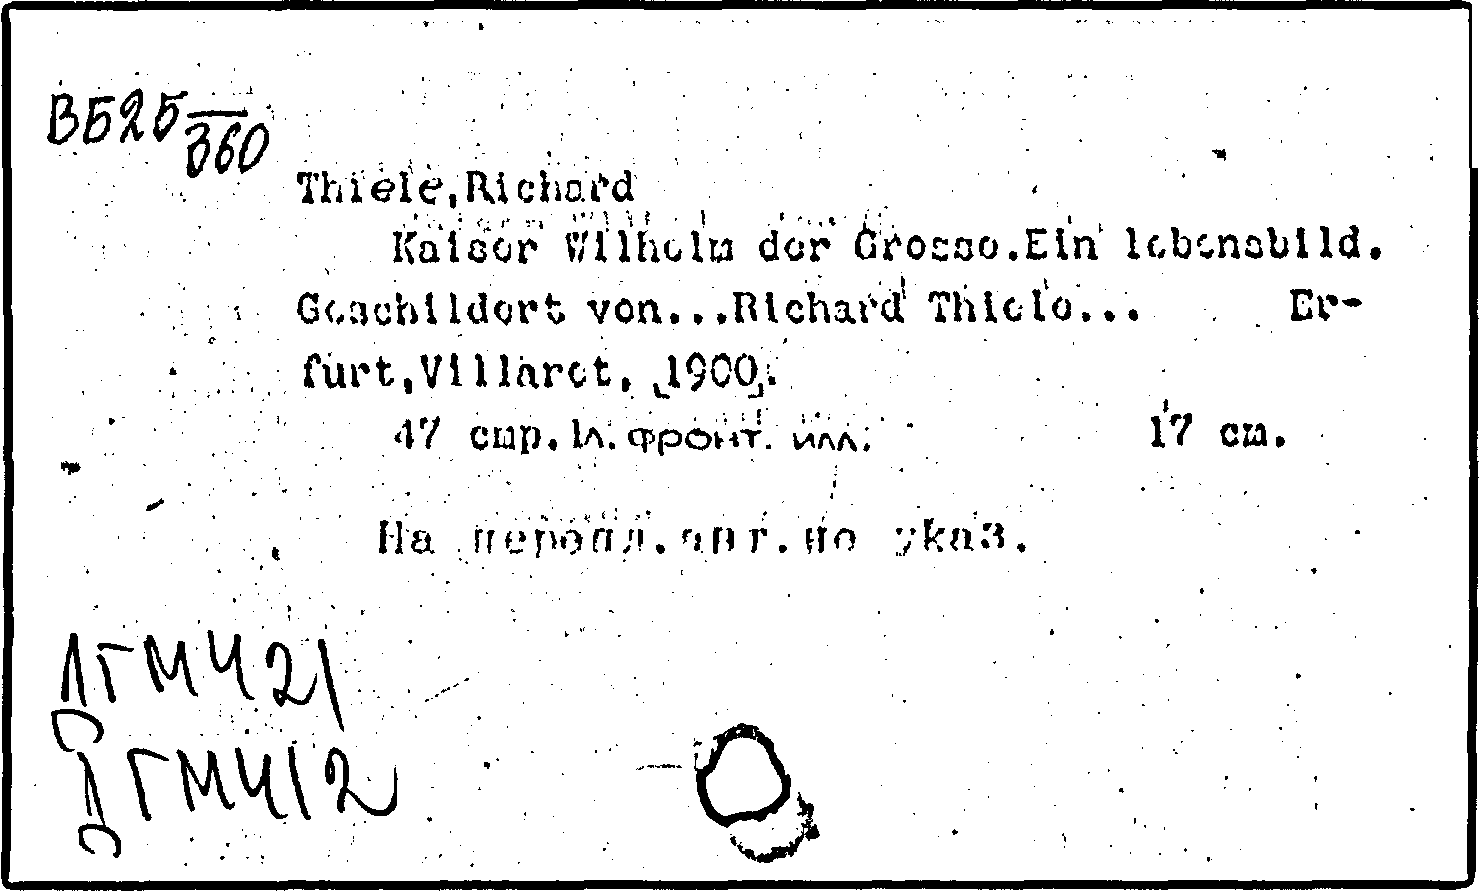 В Б 25/360
Thiele, Richard
Kaiser Wilhelm der Grosse. Ein lebensbild.
Geschildert von...Richard Thiele... Er-
furt, Villaret, [1900].
47 стр. 1л. фронт. илл. 17 см.
На перепл. авт. не указ.
ЛГМЧ21
ЛГМЧ12